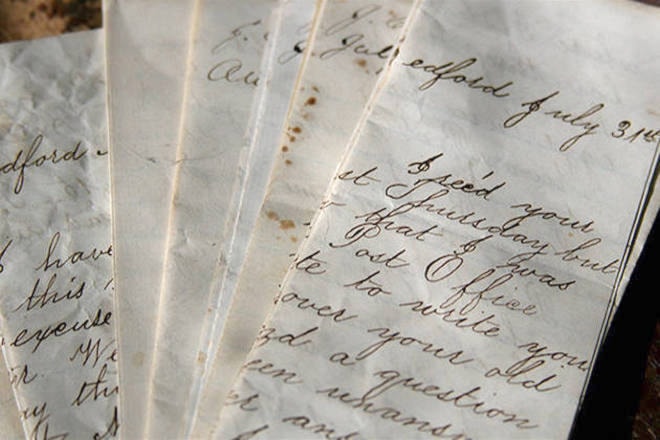 dford
I have
this
excuse
r. We
y th
J. July
Au
edford July 31st
I rec'd your
st Thursday but
that I was
Post Office
te to write you
over your old
d a question
een unans
er an